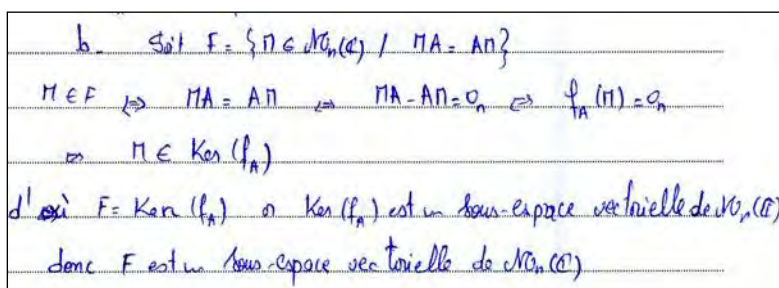 b. Soit F = {M ∈ 𝓜n(ℂ) / MA = AM}
M ∈ F ⇔ MA = AM ⇔ MA - AM = 0n ⇔ fA(M) = 0n
⇔ M ∈ Ker (fA)
d'où F = Ker (fA) or Ker (fA) est un sous-espace vectorielle de 𝓜n(ℂ)
donc F est un sous-espace vectorielle de 𝓜n(ℂ)